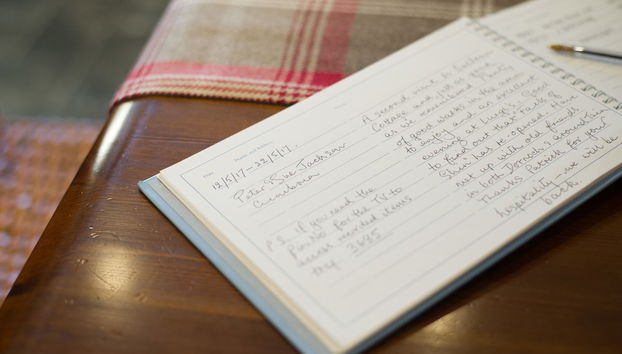 Date
Name and Address
12/5/17 — 22/5/17.
Peter & Sue Jackson
Cumbria
P.S. if you need the
Pin No for the TV to
access recorded items
they 3685
A second visit to
Cottage and just as good
as we remembered. Plenty
of good walks in the area
to enjoy and an excellent
evening at Luigi's. Good
to find out that "Falls of
Shin" has re-opened. Have
met up with old friends
in both Dornoch &
Thanks Patrick for your
hospitality – we will be
back.